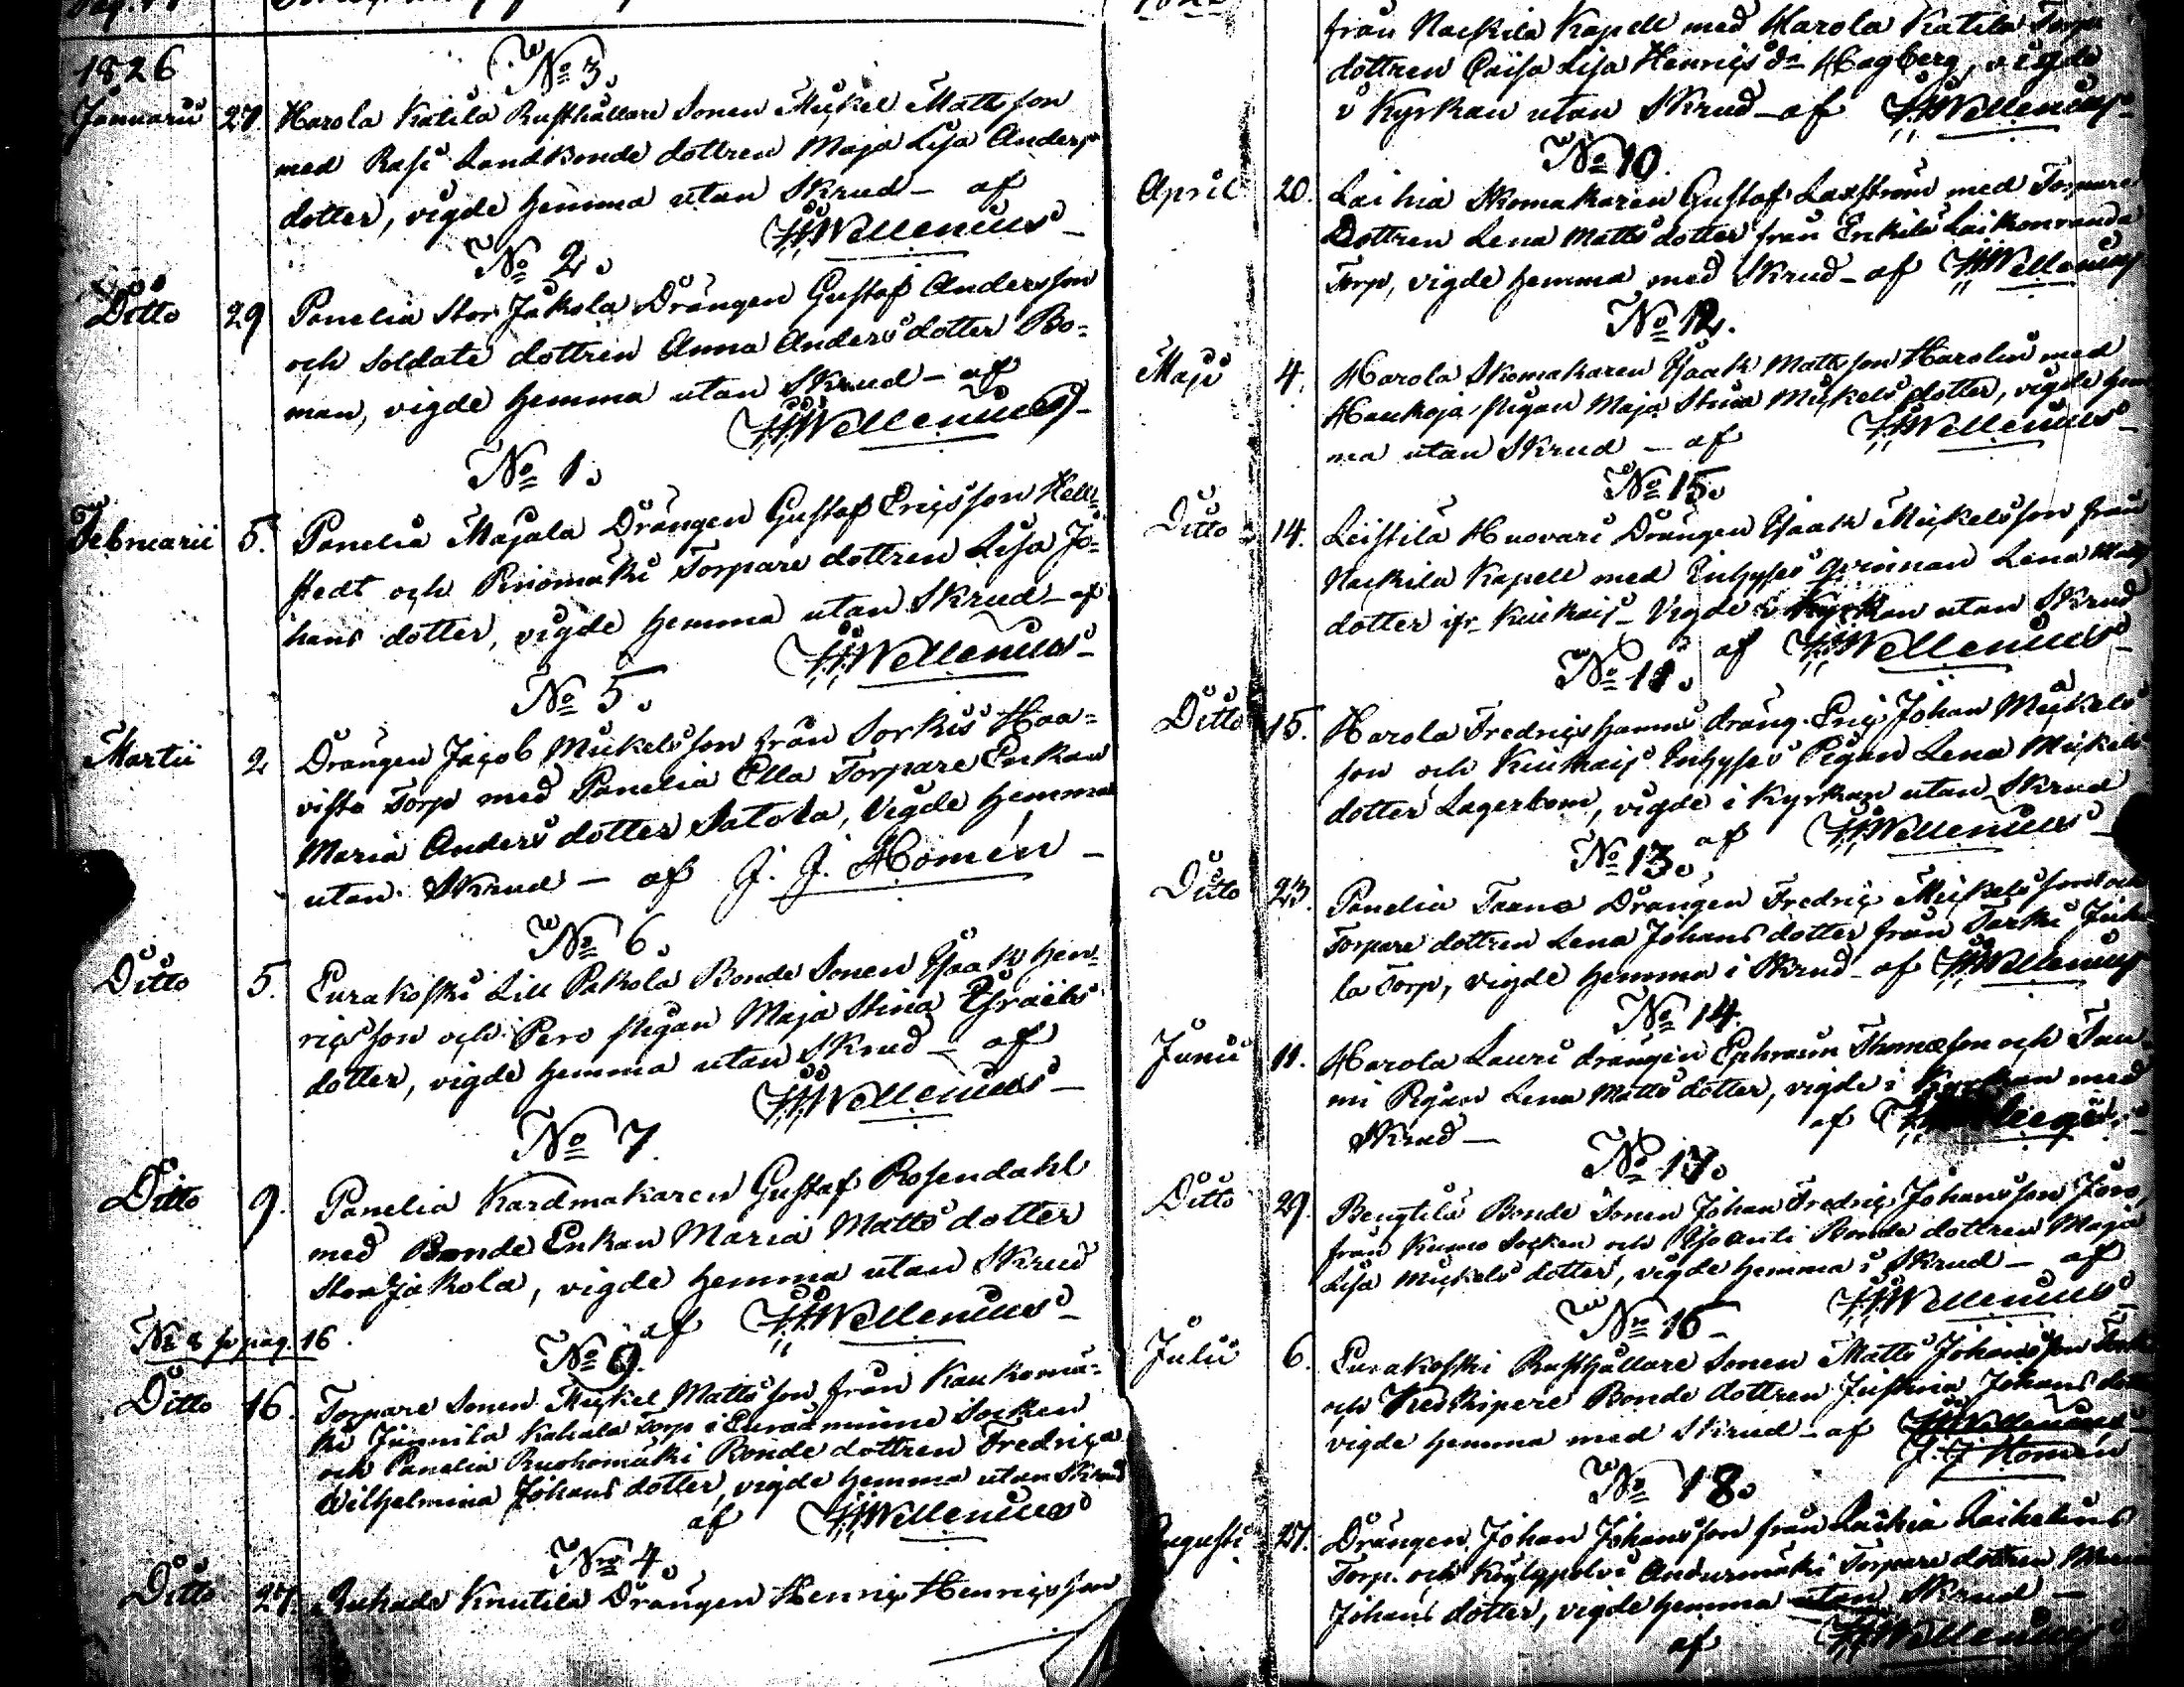 1826
No 3.
Januarii 27. Harola Katila Rusthållare Sonen Mickel Mattsson
med Rasi Landbonde dottren Maja Lisa Anders
dotter, vigde hemma utan Skrud – af
HWellenius
No 2.
Ditto 29 Panelia Stor Jakola Drängen Gustaf Andersson
och Soldate dottren Anna Anders dotter Bo=
man, vigde hemma utan Skrud – af
HWellenius
No 1.
Februarii 5. Panelia Majala Drängen Gustaf Ericsson Hell=
stedt och Pinomäki Torpare dottren Lisa Jo=
hans dotter, vigde hemma utan Skrud – af
HWellenius
No 5.
Martii 2 Drängen Jacob Mickelsson från Sorkis Haa=
visto Torp med Panelia Ella Torpare Enkan
Maria Anders dotter Satola, Vigde hemma
utan Skrud – af J. J. Homén
No 6.
Ditto 5. Eurakoski Lill Pakola Bonde Sonen Isaak Hen=
ricsson och Pero pigan Maja Stina Israels
dotter, vigde hemma utan Skrud – af
HWellenius
No 7.
Ditto 9. Panelia Kardmakaren Gustaf Rosendahl
med Bonde Enkan Maria Matts dotter
Stor Jakola, vigde hemma utan Skrud
af HWellenius
No 8 på pag. 16.
No 9.
Ditto 16. Torpare Sonen Mickel Mattsson från Kaukomä=
ki Junnila Kahala Torp i Euraåminne Socken
och Panelia Ruohomäki Bonde dottren Fredrica
Wilhelmina Johans dotter, vigde hemma utan Skrud
af HWellenius
No 4.
Ditto 27. Knutila Drängen Henric Henricsson
från Nackila Kapell med Harola Katila Torp
dottren Caisa Lisa Henrics dr Hagberg, vigde
i Kyrkan utan Skrud – af HWellenius
No 10.
April 20. Laihia Skomakaren Gustaf Laxström med Torpare
Dottren Lena Matts dotter från Enkila Laikonranda
Torp, vigde hemma med Skrud – af HWellenius
No 12.
Maji 4. Harola Skomakaren Isaak Mattsson Harolin med
Haukoja pigan Maja Stina Mickels dotter, vigde hem
ma utan Skrud – af HWellenius
No 15.
Ditto 14. Leistila Huovari Drängen Isaak Mickelsson från
Nackila Kapell med Inhyses qvinnan Lena Matts
dotter ifr. Kiukais – Vigde i Kyrkan utan Skrud
af HWellenius
No 11.
Ditto 15. Harola Fredrics hemms dräng Eric Johan Mickels
son och Kiukais Inhyses Pigan Lena Mickels
dotter Lagerbom, vigde i Kyrkan utan Skrud
af HWellenius
No 13.
Ditto 23. Panelia Drängen Fredric Mickelsson och
Torpare dottren Lena Johans dotter från
la Torp, vigde hemma i Skrud – af HWellenius
No 14.
Junii 11. Harola Lauri drängen Ephraim Thomasson och
mi Pigan Lena Matts dotter, vigde i Kyrkan med
Skrud – af
No 17.
Ditto 29. Bengtilä Bonde Sonen Johan Fredric Johansson
från Kumo Socken och Bonde dottren Maja
Lisa Mickels dotter, vigde hemma i Skrud – af
HWellenius
No 16
Julii 6. Eurakoski Rusthållare Sonen Matts Johansson
och Bonde dottren Justina Johans dotter
vigde hemma med Skrud – af HWellenius
J. J Homén
No 18.
Augusti 27. Drängen Johan Johansson från
Torp och Köylypolvi Torpare dottren
Johans dotter, vigde hemma utan Skrud –
af HWellenius